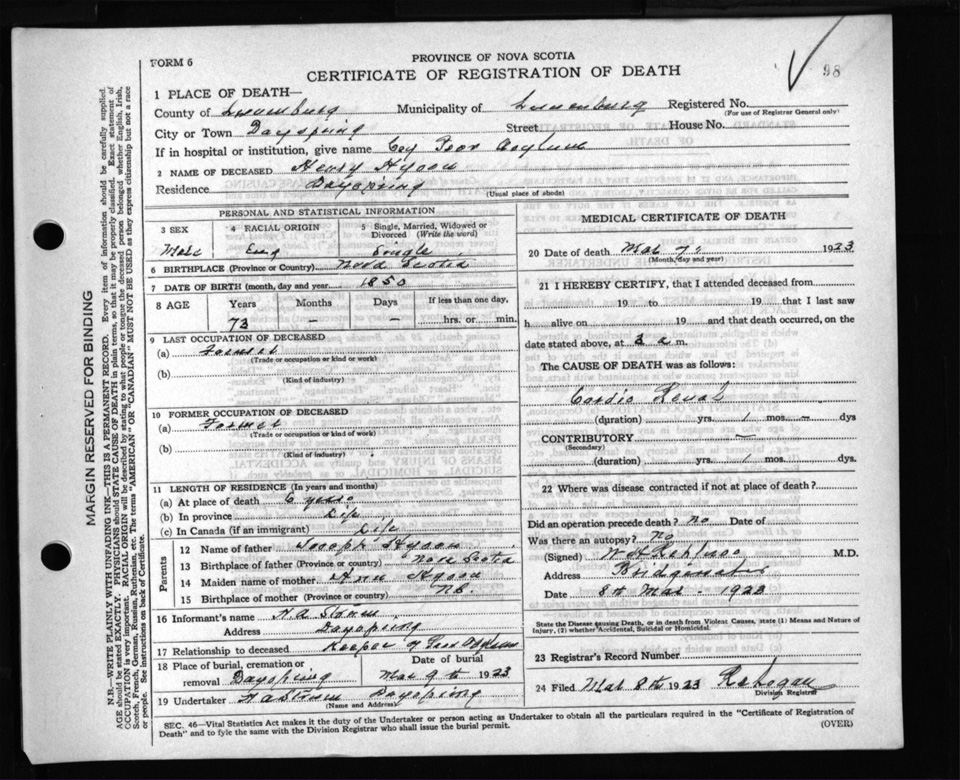 98
FORM 6
PROVINCE OF NOVA SCOTIA
CERTIFICATE OF REGISTRATION OF DEATH
1 PLACE OF DEATH—
County of Lunenburg Municipality of Lunenburg Registered No.
(For use of Registrar General only)
City or Town Dayspring Street House No.
If in hospital or institution, give name Poor Asylum
2 NAME OF DECEASED Henry
Residence Dayspring
(Usual place of abode)
MARGIN RESERVED FOR BINDING
N.B.—WRITE PLAINLY WITH UNFADING INK—THIS IS A PERMANENT RECORD. Every item of information should be carefully supplied.
AGE should be stated EXACTLY. PHYSICIANS should STATE CAUSE OF DEATH in plain terms, so that it may be properly classified. Exact statement of
OCCUPATION is very important. RACIAL ORIGIN will be described by stating to what people or tongue the deceased person belonged whether English, Irish,
Scotch, French, German, Russian, Ruthenian, etc. The terms "AMERICAN" OR "CANADIAN" MUST NOT BE USED as they express citizenship but not a race
or people. See instructions on back of Certificate.
PERSONAL AND STATISTICAL INFORMATION
3 SEX
4 RACIAL ORIGIN
5 Single, Married, Widowed or
Divorced (Write the word)
Male Eng Single
6 BIRTHPLACE (Province or Country) Nova Scotia
7 DATE OF BIRTH (month, day and year) 1850
8 AGE
Years Months Days If less than one day,
73 — — hrs. or min.
9 LAST OCCUPATION OF DECEASED
(a) Farmer
(Trade or occupation or kind or work)
(b)
(Kind of industry)
10 FORMER OCCUPATION OF DECEASED
(a) Farmer
(Trade or occupation or kind of work)
(b)
(Kind of industry)
11 LENGTH OF RESIDENCE (In years and months)
(a) At place of death 6 years
(b) In province Life
(c) In Canada (if an immigrant) Life
Parents
12 Name of father Joseph
13 Birthplace of father (Province or country) Nova Scotia
14 Maiden name of mother Ann
15 Birthplace of mother (Province or country) N.S.
16 Informant's name
Address Dayspring
17 Relationship to deceased Keeper of Poor Asylum
18 Place of burial, cremation or
removal Dayspring
Date of burial
Mar 9th 1923
19 Undertaker Dayspring
(Name and Address)
MEDICAL CERTIFICATE OF DEATH
20 Date of death Mar 7 1923
(Month, day and year)
21 I HEREBY CERTIFY, that I attended deceased from
19 to 19 that I last saw
h alive on 19 and that death occurred, on the
date stated above, at 3 a m.
The CAUSE OF DEATH was as follows:
Cardio Renal
(duration) yrs. 1 mos. — dys
CONTRIBUTORY —
(Secondary)
(duration) yrs. 1 mos. dys.
22 Where was disease contracted if not at place of death?
Did an operation precede death? No Date of
Was there an autopsy? No
(Signed) M.D.
Address Bridgewater
Date 8th Mar. 1923
State the Disease causing Death, or in death from Violent Causes, state (1) Means and Nature of
Injury, (2) whether Accidental, Suicidal or Homicidal.
23 Registrar's Record Number
24 Filed Mar 8th 1923
Division Registrar
SEC. 46—Vital Statistics Act makes it the duty of the Undertaker or person acting as Undertaker to obtain all the particulars required in the "Certificate of Registration of
Death" and to fyle the same with the Division Registrar who shall issue the burial permit.
(OVER)